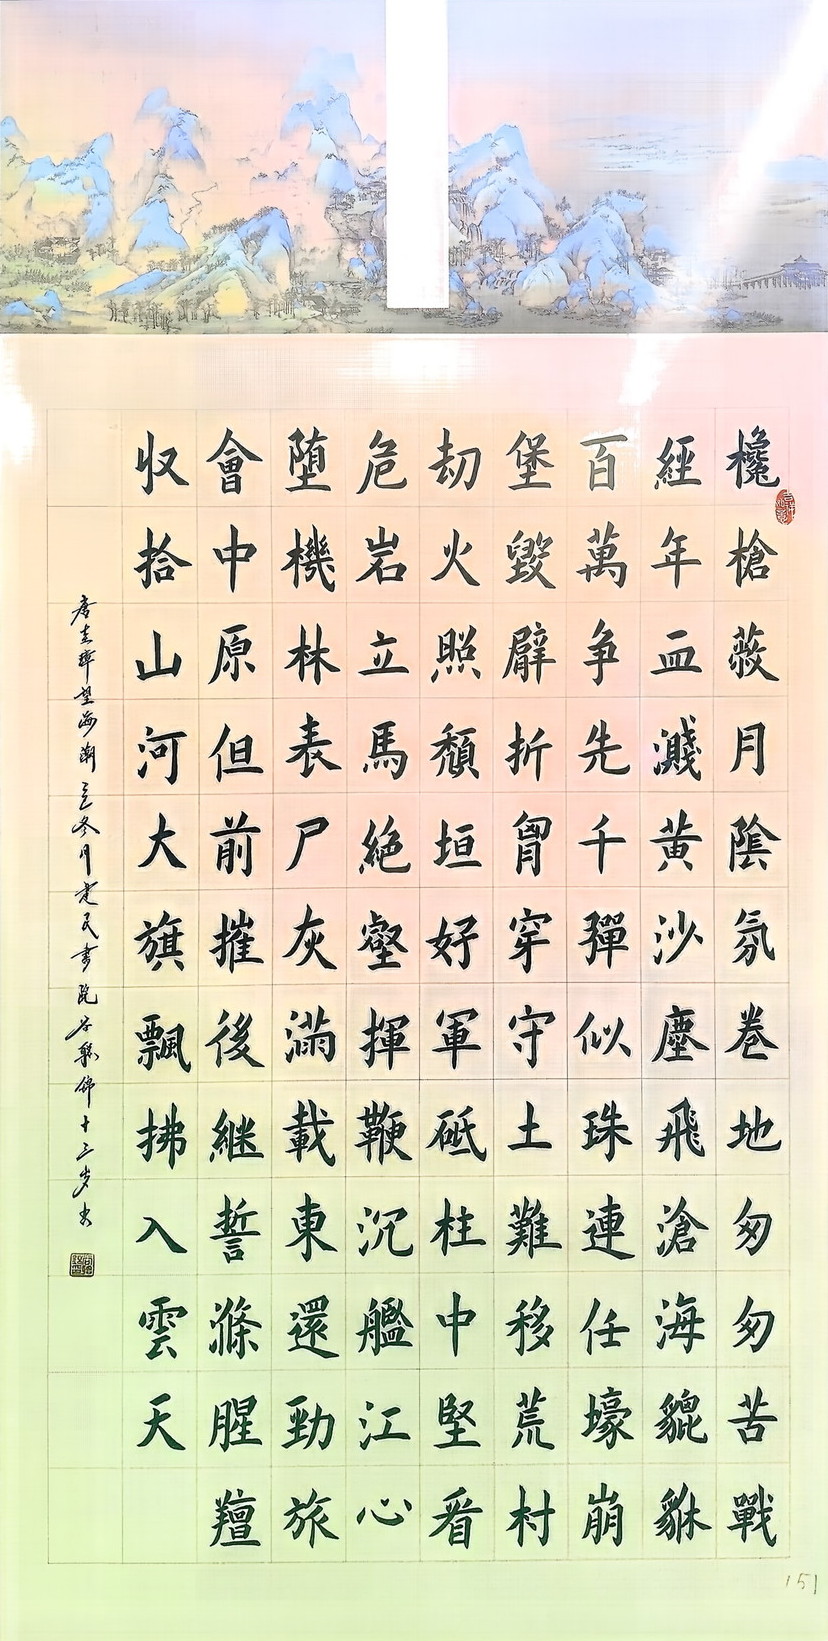 欃槍蔽月陰氛卷地匆匆苦戰
經年血濺黃沙塵飛滄海貔貅
百萬爭先千彈似珠連任壕崩
堡毀臂折胷穿守土難移荒村
劫火照頹垣好軍砥柱中堅看
危岩立馬絶壑揮鞭沉艦江心
墮機林表尸灰滿載東還勁旅
會中原但前摧後継誓滌腥羶
收拾山河大旗飄拂入雲天
唐圭璋望海潮 冬月 民書院 錦十三歲书
151